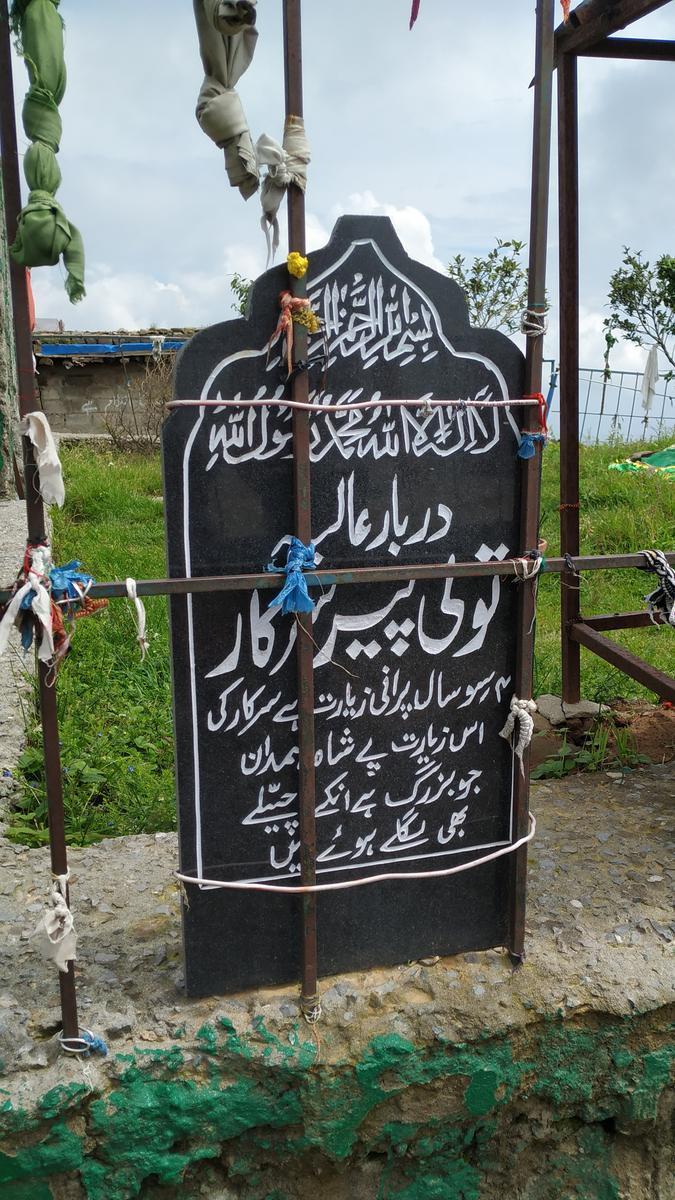 بسم اللہ الرحمٰن الرحیم
لا الہ الا اللہ محمد رسول اللہ
دربار عالیہ
تولی پیر سرکار
۴ سو سال پرانی زیارت ہے سرکار کی
اس زیارت پے شاہ ہمدان
جو بزرگ ہے انکے چیلے
بھی لگلے ہوئے ہیں